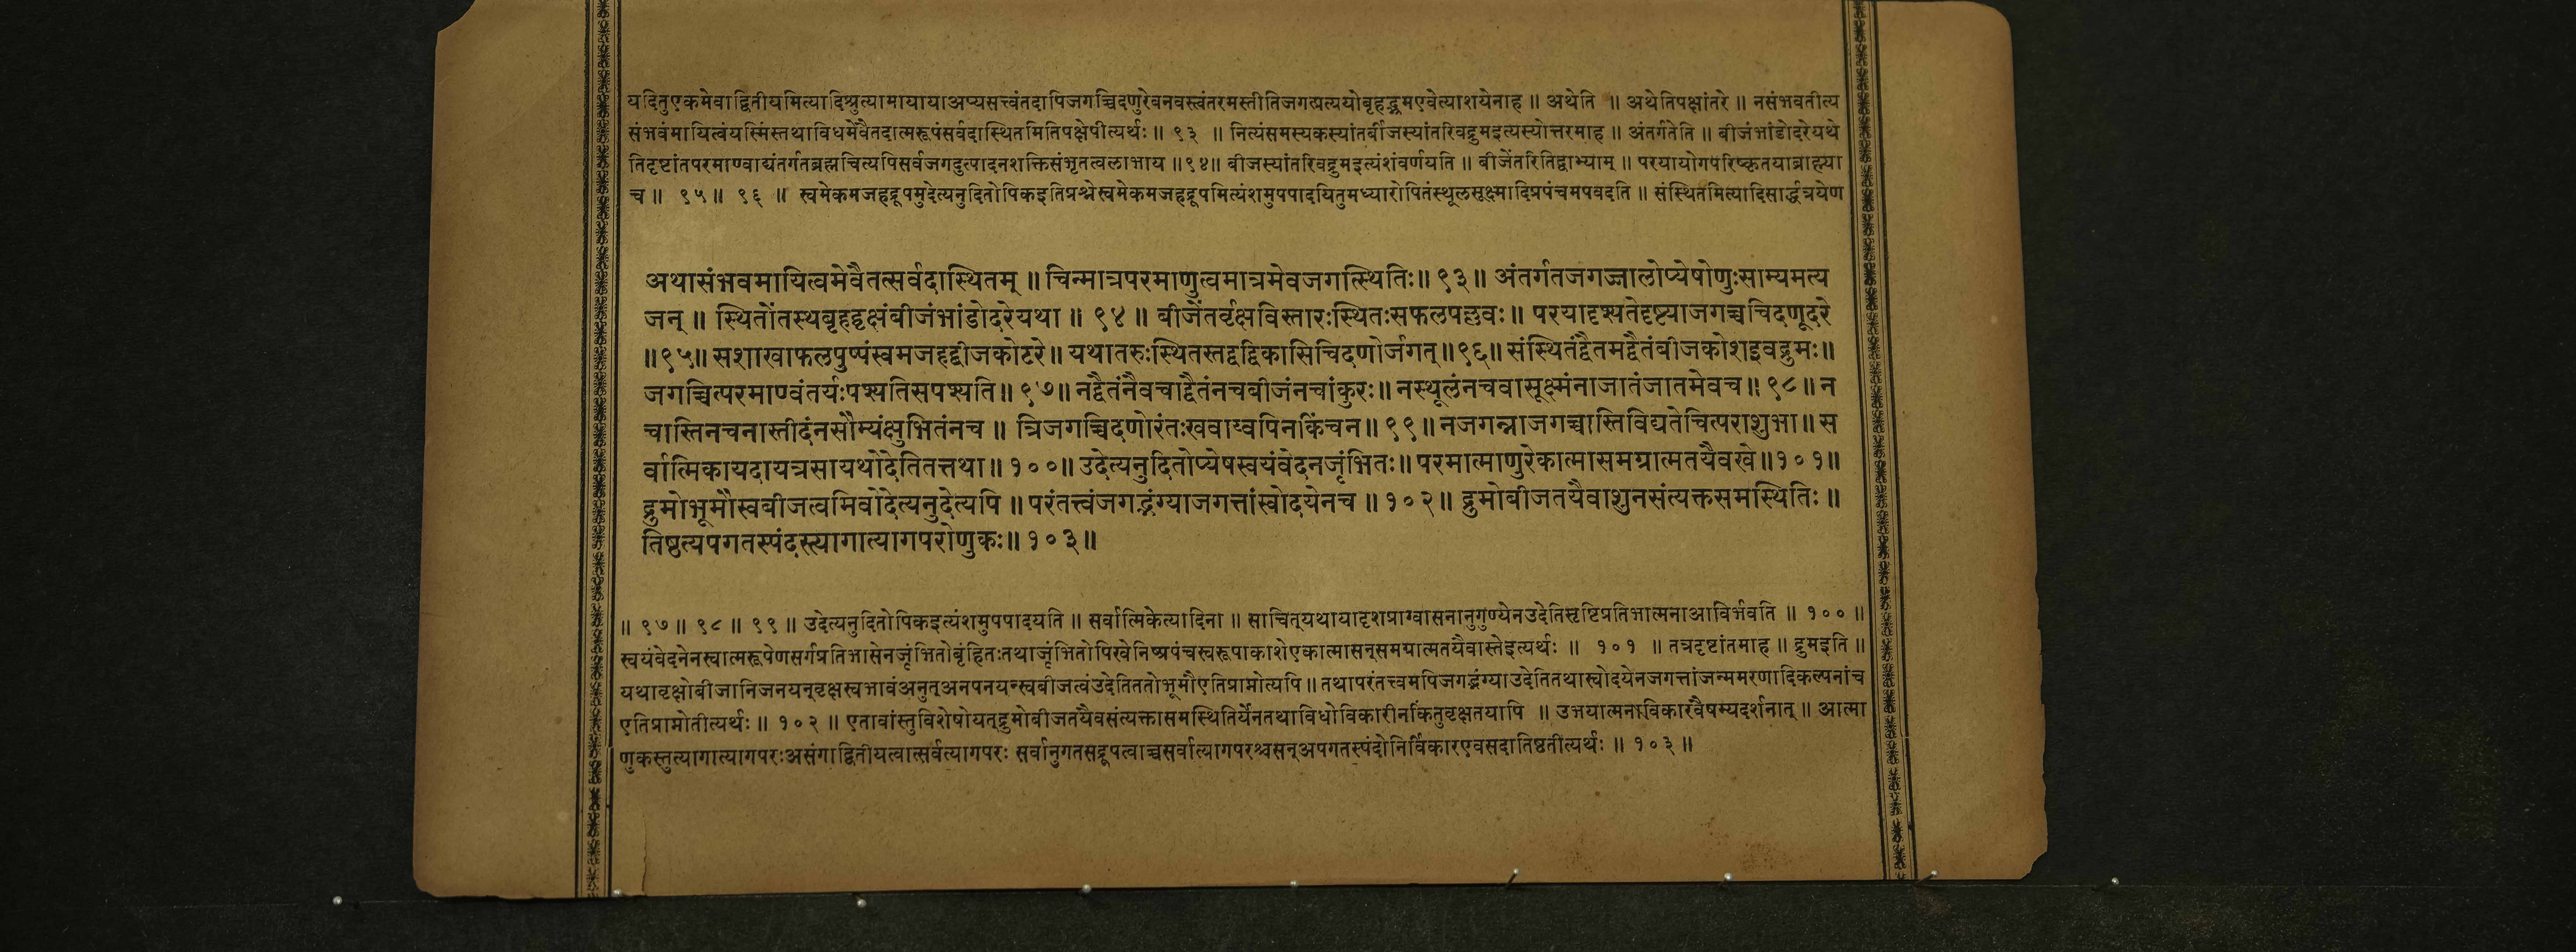 यदितुएकमेवाद्वितीयमित्यादिश्रुत्यामायायाअप्यसत्त्वंतदापिजगच्चिदणुरेवनवस्त्वंतरमस्तीतिजगत्प्रत्ययोबृहद्भ्रमएवेत्याशयेनाह ॥ अथेति ॥ अथेतिपक्षांतरे ॥ नसंभवतीत्य
संभवंमायित्वंयस्मिंस्तथाविधमेवैतदात्मरूपंसर्वदास्थितमितिपक्षेपीत्यर्थः ॥ ९३ ॥ नित्यंसमस्यकस्यांतर्बीजस्यांतरिवद्रुमइत्यस्योत्तरमाह ॥ अंतर्गतेति ॥ बीजंभांडोदरेयथे
तिदृष्टांतपरमाण्वाद्यंतर्गतब्रह्मचित्यपिसर्वजगदुत्पादनशक्तिसंभृतत्वलाभाय ॥९४॥ बीजस्यांतरिवद्रुमइत्यंशंवर्णयति ॥ बीजेंतरितिद्वाभ्याम् ॥ परयायोगपरिष्कृतयाब्राह्म्या
च ॥ ९५ ॥ ९६ ॥ स्वमेकमजहद्रूपमुदेत्यनुदितोपिकइतिप्रश्नेस्वमेकमजहद्रूपमित्यंशमुपपादयितुमध्यारोपितंस्थूलसूक्ष्मादिप्रपंचमपवदति ॥ संस्थितमित्यादिसार्द्धत्रयेण
अथासंभवमायित्वमेवैतत्सर्वदास्थितम् ॥ चिन्मात्रपरमाणुत्वमात्रमेवजगत्स्थितिः॥ ९३ ॥ अंतर्गतजगज्जालोप्येषोणुःसाम्यमत्य
जन् ॥ स्थितोंतस्थबृहद्वृक्षंबीजंभांडोदरेयथा ॥ ९४ ॥ बीजेंतर्वृक्षविस्तारःस्थितःसफलपल्लवः॥ परयादृश्यतेदृष्ट्याजगच्चचिदणूदरे
॥९५॥ सशाखाफलपुष्पंस्वमजहद्बीजकोटरे॥ यथातरुःस्थितस्तद्वद्विकासिचिदणोर्जगत्॥९६॥ संस्थितंद्वैतमद्वैतंबीजकोशइवद्रुमः॥
जगच्चित्परमाण्वंतर्यःपश्यतिसपश्यति॥ ९७॥ नद्वैतंनैवचाद्वैतंनचबीजंनचांकुरः॥ नस्थूलंनचवासूक्ष्मंनाजातंजातमेवच॥ ९८॥ न
चास्तिनचनास्तीदंनसौम्यंक्षुभितंनच ॥ त्रिजगच्चिदणोरंतःखवाय्वपिनकिंचन॥ ९९॥ नजगन्नाजगच्चास्तिविद्यतेचित्पराशुभा॥ स
र्वात्मिकायदायत्रसायथोदेतितत्तथा॥ १००॥ उदेत्यनुदितोप्येषस्वयंवेदनजृंभितः॥ परमात्माणुरेकात्मासमग्रात्मतयैवखे॥१०१॥
द्रुमोभूमौस्वबीजत्वमिवोदेत्यनुदेत्यपि ॥ परंतत्त्वंजगद्भंग्याजगत्तांस्वोदयेनच ॥ १०२॥ द्रुमोबीजतयैवाशुनसंत्यक्तसमस्थितिः ॥
तिष्ठत्यपगतस्पंदस्त्यागात्यागपरोणुकः॥ १०३॥
॥ ९७ ॥ ९८ ॥ ९९ ॥ उदेत्यनुदितोपिकइत्यंशमुपपादयति ॥ सर्वात्मिकेत्यादिना ॥ साचित्यथायादृशप्राग्वासनानुगुण्येनउदेतिसृष्टिप्रतिभात्मनाआविर्भवति ॥ १०० ॥
स्वयंवेदनेनस्वात्मरूपेणसर्गप्रतिभासेनजृंभितोबृंहितःतथाजृंभितोपिखेनिष्प्रपंचस्वरूपाकाशेएकात्मासन्समग्रात्मतयैवास्तेइत्यर्थः ॥ १०१ ॥ तत्रदृष्टांतमाह ॥ द्रुमइति ॥
यथावृक्षोबीजानिजनयन्वृक्षस्वभावंअनुत्अनपनयन्स्वबीजत्वंउदेतिततोभूमौएतिप्राप्नोत्यपि ॥ तथापरंतत्त्वमपिजगद्भंग्याउदेतितथास्वोदयेनजगत्तांजन्ममरणादिकल्पनांच
एतिप्राप्नोतीत्यर्थः ॥ १०२ ॥ एतावांस्तुविशेषोयत्द्रुमोबीजतयैवसंत्यक्तासमस्थितिर्येनतथाविधोविकारीनकिंतुवृक्षतयापि ॥ उभयात्मनाविकारवैषम्यदर्शनात् ॥ आत्मा
णुकस्तुत्यागात्यागपरःअसंगाद्वितीयत्वात्सर्वत्यागपरः सर्वानुगतसद्रूपत्वाच्चसर्वात्यागपरश्चसन्अपगतस्पंदोनिर्विकारएवसदातिष्ठतीत्यर्थः ॥ १०३ ॥